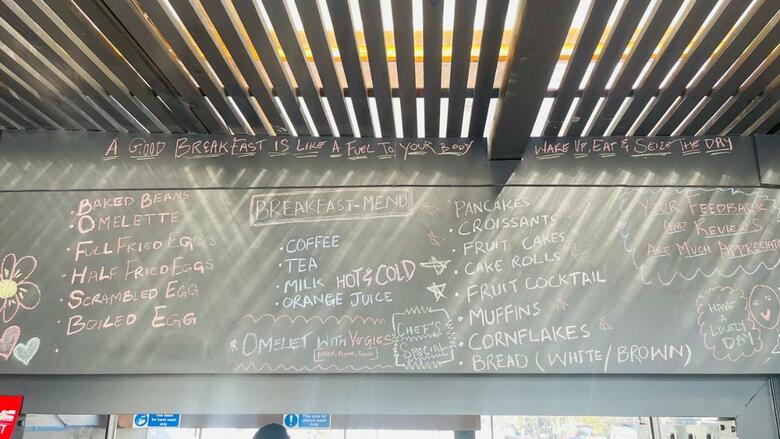 A GOOD BREAKFAST IS LIKE A FUEL TO YOUR BODY
WAKE UP, EAT & SEIZE THE DAY
BAKED BEANS
OMELETTE
FULL FRIED EGGS
HALF FRIED EGGS
SCRAMBLED EGG
BOILED EGG
BREAKFAST-MENU
COFFEE
TEA
MILK HOT & COLD
ORANGE JUICE
OMELET WITH VEGGIES
CHEF'S
SPECIAL
PANCAKES
CROISSANTS
FRUIT CAKES
CAKE ROLLS
FRUIT COCKTAIL
MUFFINS
CORNFLAKES
BREAD (WHITE/BROWN)
YOUR FEEDBACK
AND REVIEWS
ARE MUCH APPRECIAT
HAVE
A
LOVELY
DAY